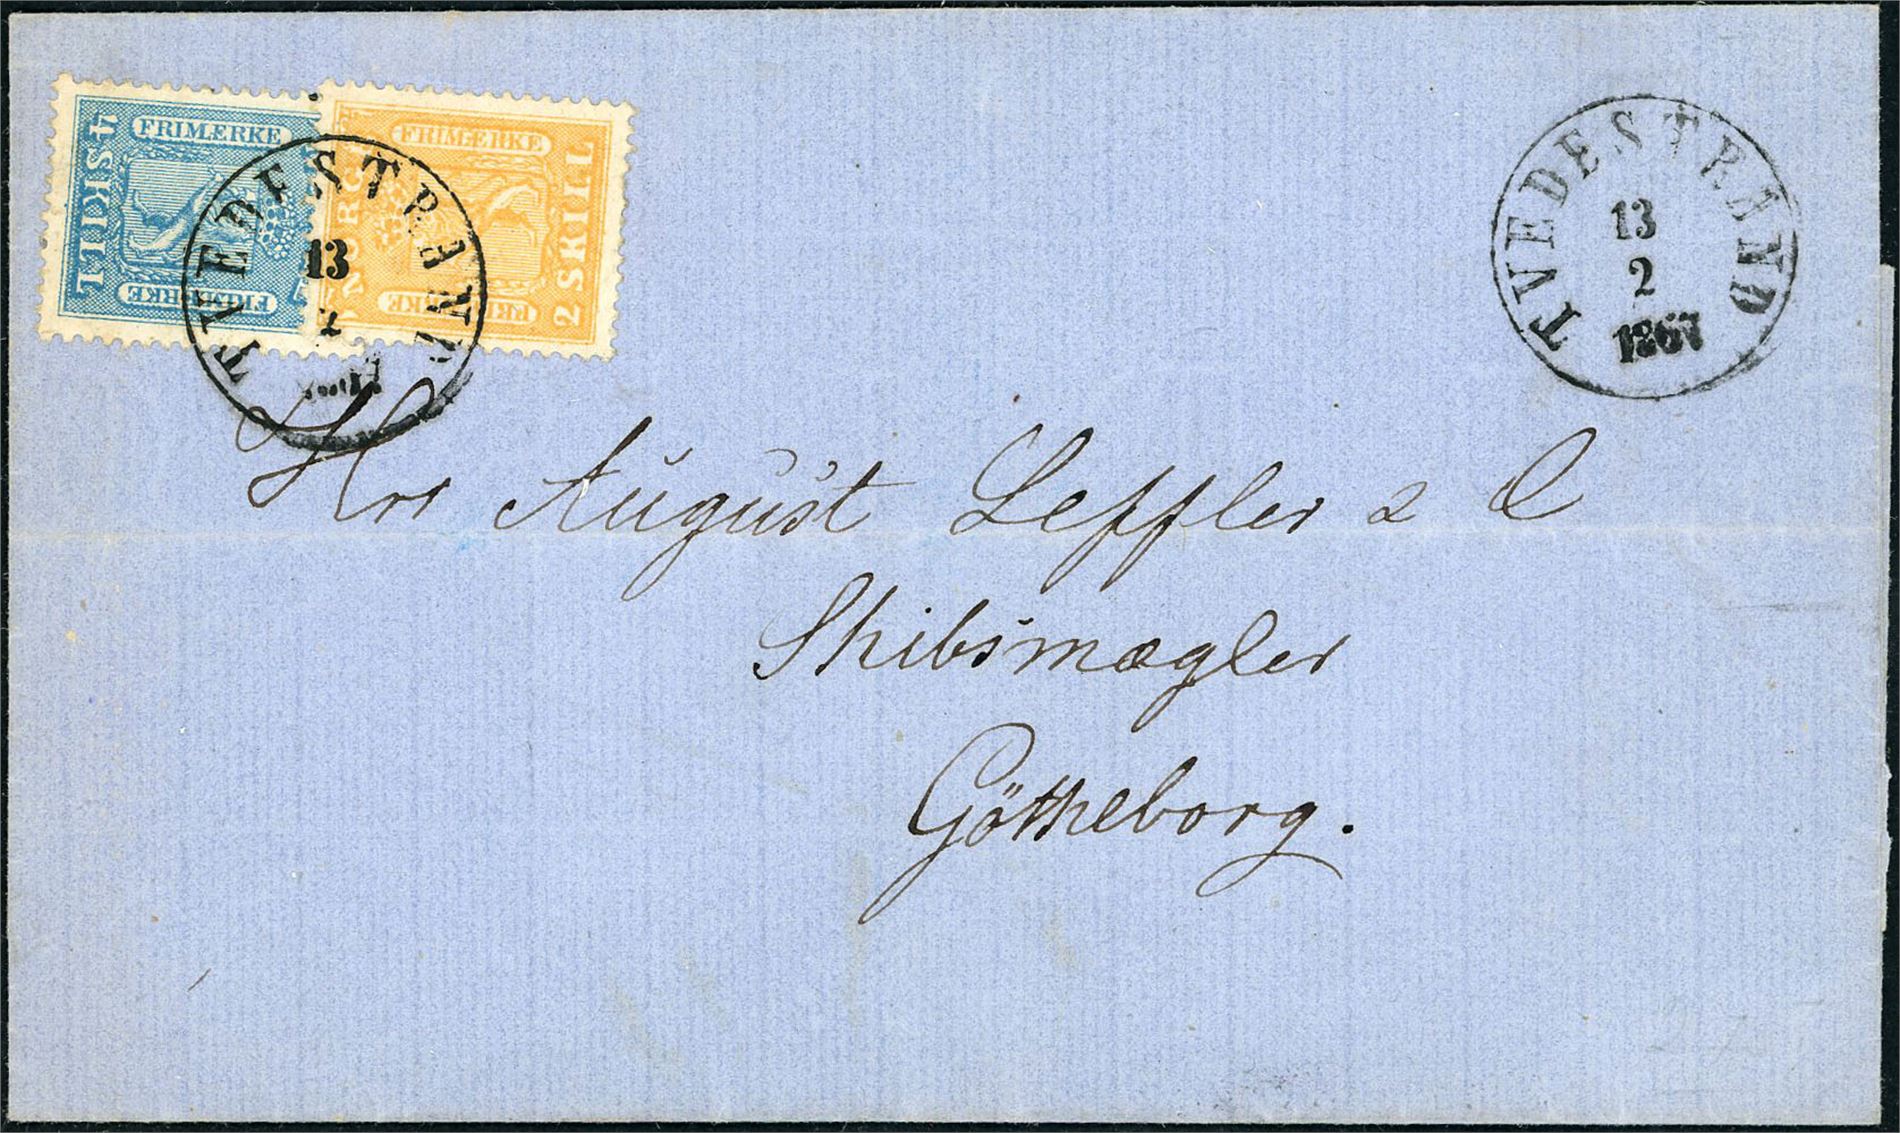 FRIMÆRKE
4 SKILL
FRIMÆRKE
FRIMÆRKE
NORGE
2 SKILL
FRIMÆRKE
TVEDESTRAND
13
2
TVEDESTRAND
13
2
1867
Hrr August Leffler & C
Skibsmægler
Götheborg.